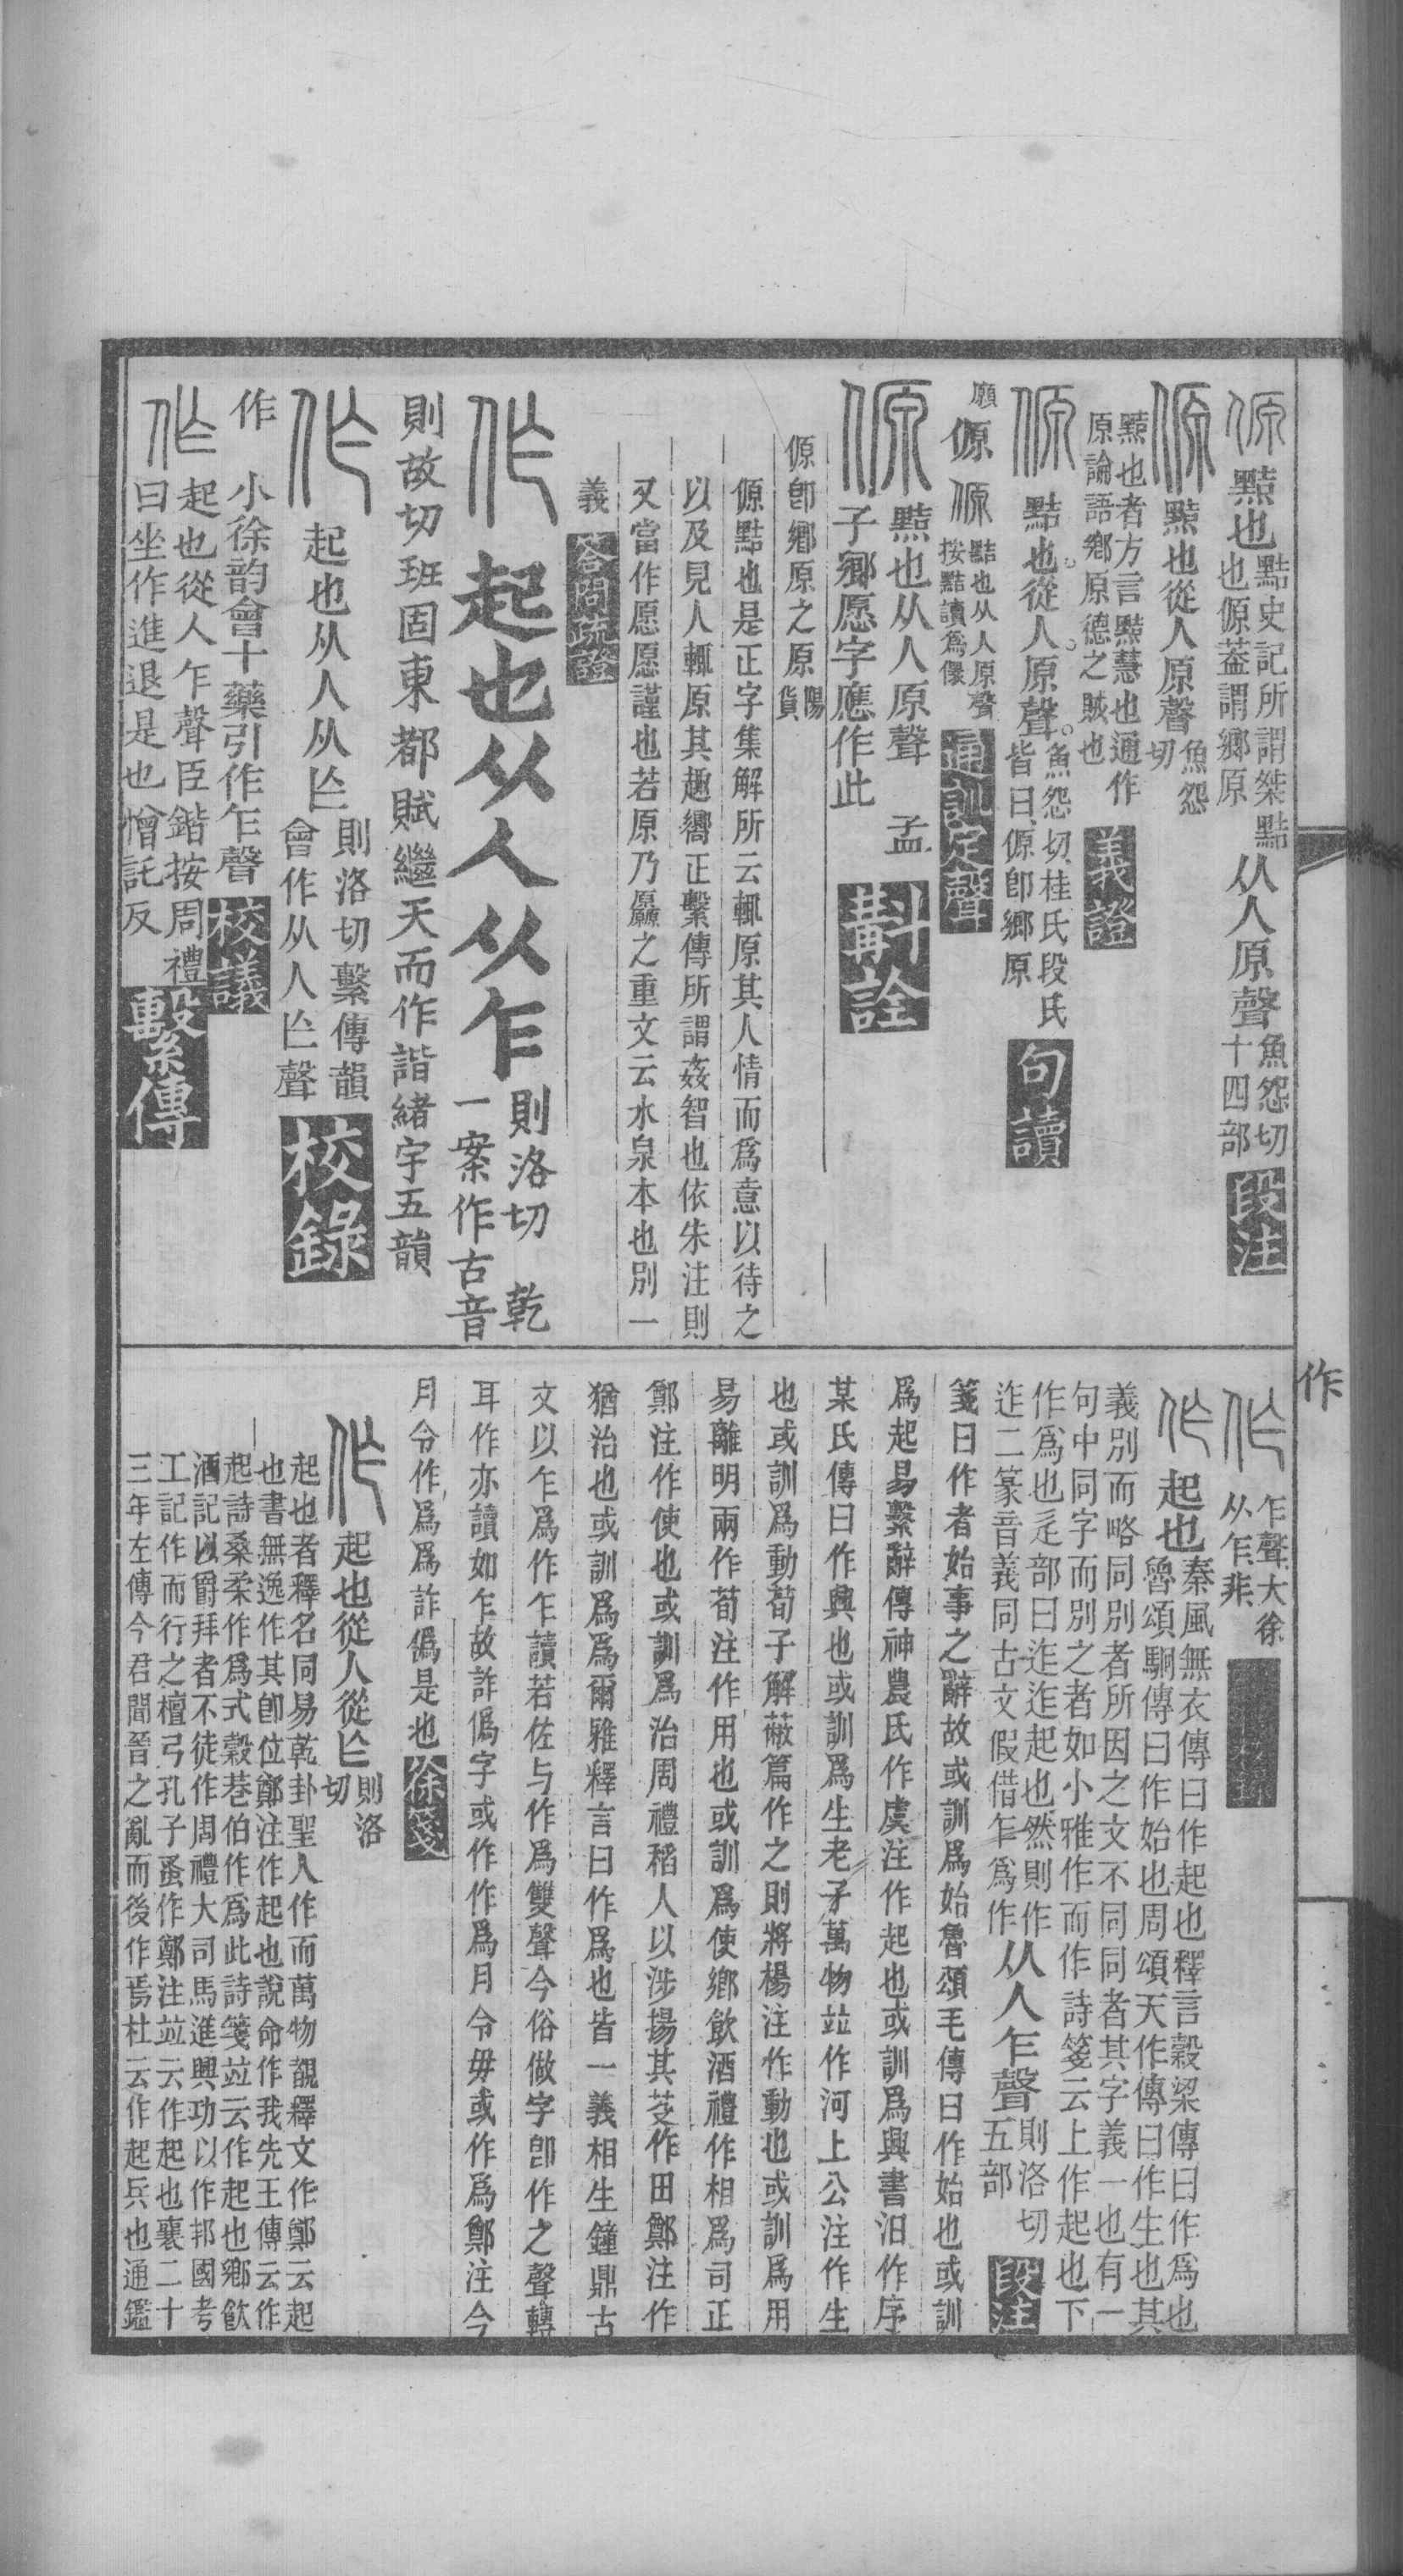 傆 黠也
黠史記所謂桀黠
也傆葢謂鄉原
从人原聲
魚怨切
十四部
段注
傆 黠也從人原聲
魚怨
切
黠也者方言黠慧也通作
原論語鄉原德之賊也
義證
傆 黠也從人原聲
魚怨切桂氏段氏
皆曰傆卽鄉原
句讀
願 傆 傆
黠也从人原聲
按黠讀爲儇
通訓定聲
傆 黠也从人原聲 孟
子鄉愿字應作此
斠詮
傆卽鄉原之原
陽
貨
傆黠也是正字集解所云輒原其人情而爲意以待之
以及見人輒原其趣嚮正繫傳所謂姦智也依朱注則
又當作愿愿謹也若原乃厵之重文云水泉本也別一
義 答問疏證
作 起也从人从乍
則洛切 乾
一案作古音
則故切班固東都賦繼天而作諧緒宇五韻
作 起也从人从亾
則洛切繫傳韻
會作从人亾聲
校錄
作 小徐韵會十藥引作乍聲 校議
作 起也從人乍聲臣鍇按周禮
曰坐作進退是也憎託反
繫傳
作
作
乍聲大徐
从乍非
作 起也
秦風無衣傳曰作起也釋言穀梁傳曰作爲也
魯頌駉傳曰作始也周頌天作傳曰作生也其
義別而略同別者所因之文不同同者其字義一也有一
句中同字而別之者如小雅作而作詩箋云上作起也下
作爲也辵部曰迮迮起也然則作
迮二篆音義同古文假借乍爲作
从人乍聲
則洛切
五部
段注
箋曰作者始事之辭故或訓爲始魯頌毛傳曰作始也或訓
爲起易繫辭傳神農氏作虞注作起也或訓爲興書汨作序
某氏傳曰作興也或訓爲生老子萬物竝作河上公注作生
也或訓爲動荀子解蔽篇作之則將楊注作動也或訓爲用
易離明兩作荀注作用也或訓爲使鄉飲酒禮作相爲司正
鄭注作使也或訓爲治周禮稻人以涉揚其芟作田鄭注作
猶治也或訓爲爲爾雅釋言曰作爲也皆一義相生鐘鼎古
文以乍爲作乍讀若佐与作爲雙聲今俗做字卽作之聲轉
耳作亦讀如乍故詐僞字或作作爲月令毋或作爲鄭注今
月令作爲爲詐僞是也 徐箋
作 起也從人從亾
則洛
切
起也者釋名同易乾卦聖人作而萬物覩釋文作鄭云起
也書無逸作其卽位鄭注作起也說命作我先王傳云作
起詩桑柔作爲式穀巷伯作爲此詩箋竝云作起也鄉飲
酒記以爵拜者不徒作周禮大司馬進興功以作邦國考
工記作而行之檀弓孔子蚤作鄭注竝云作起也襄二十
三年左傳今君聞晉之亂而後作焉杜云作起兵也通鑑